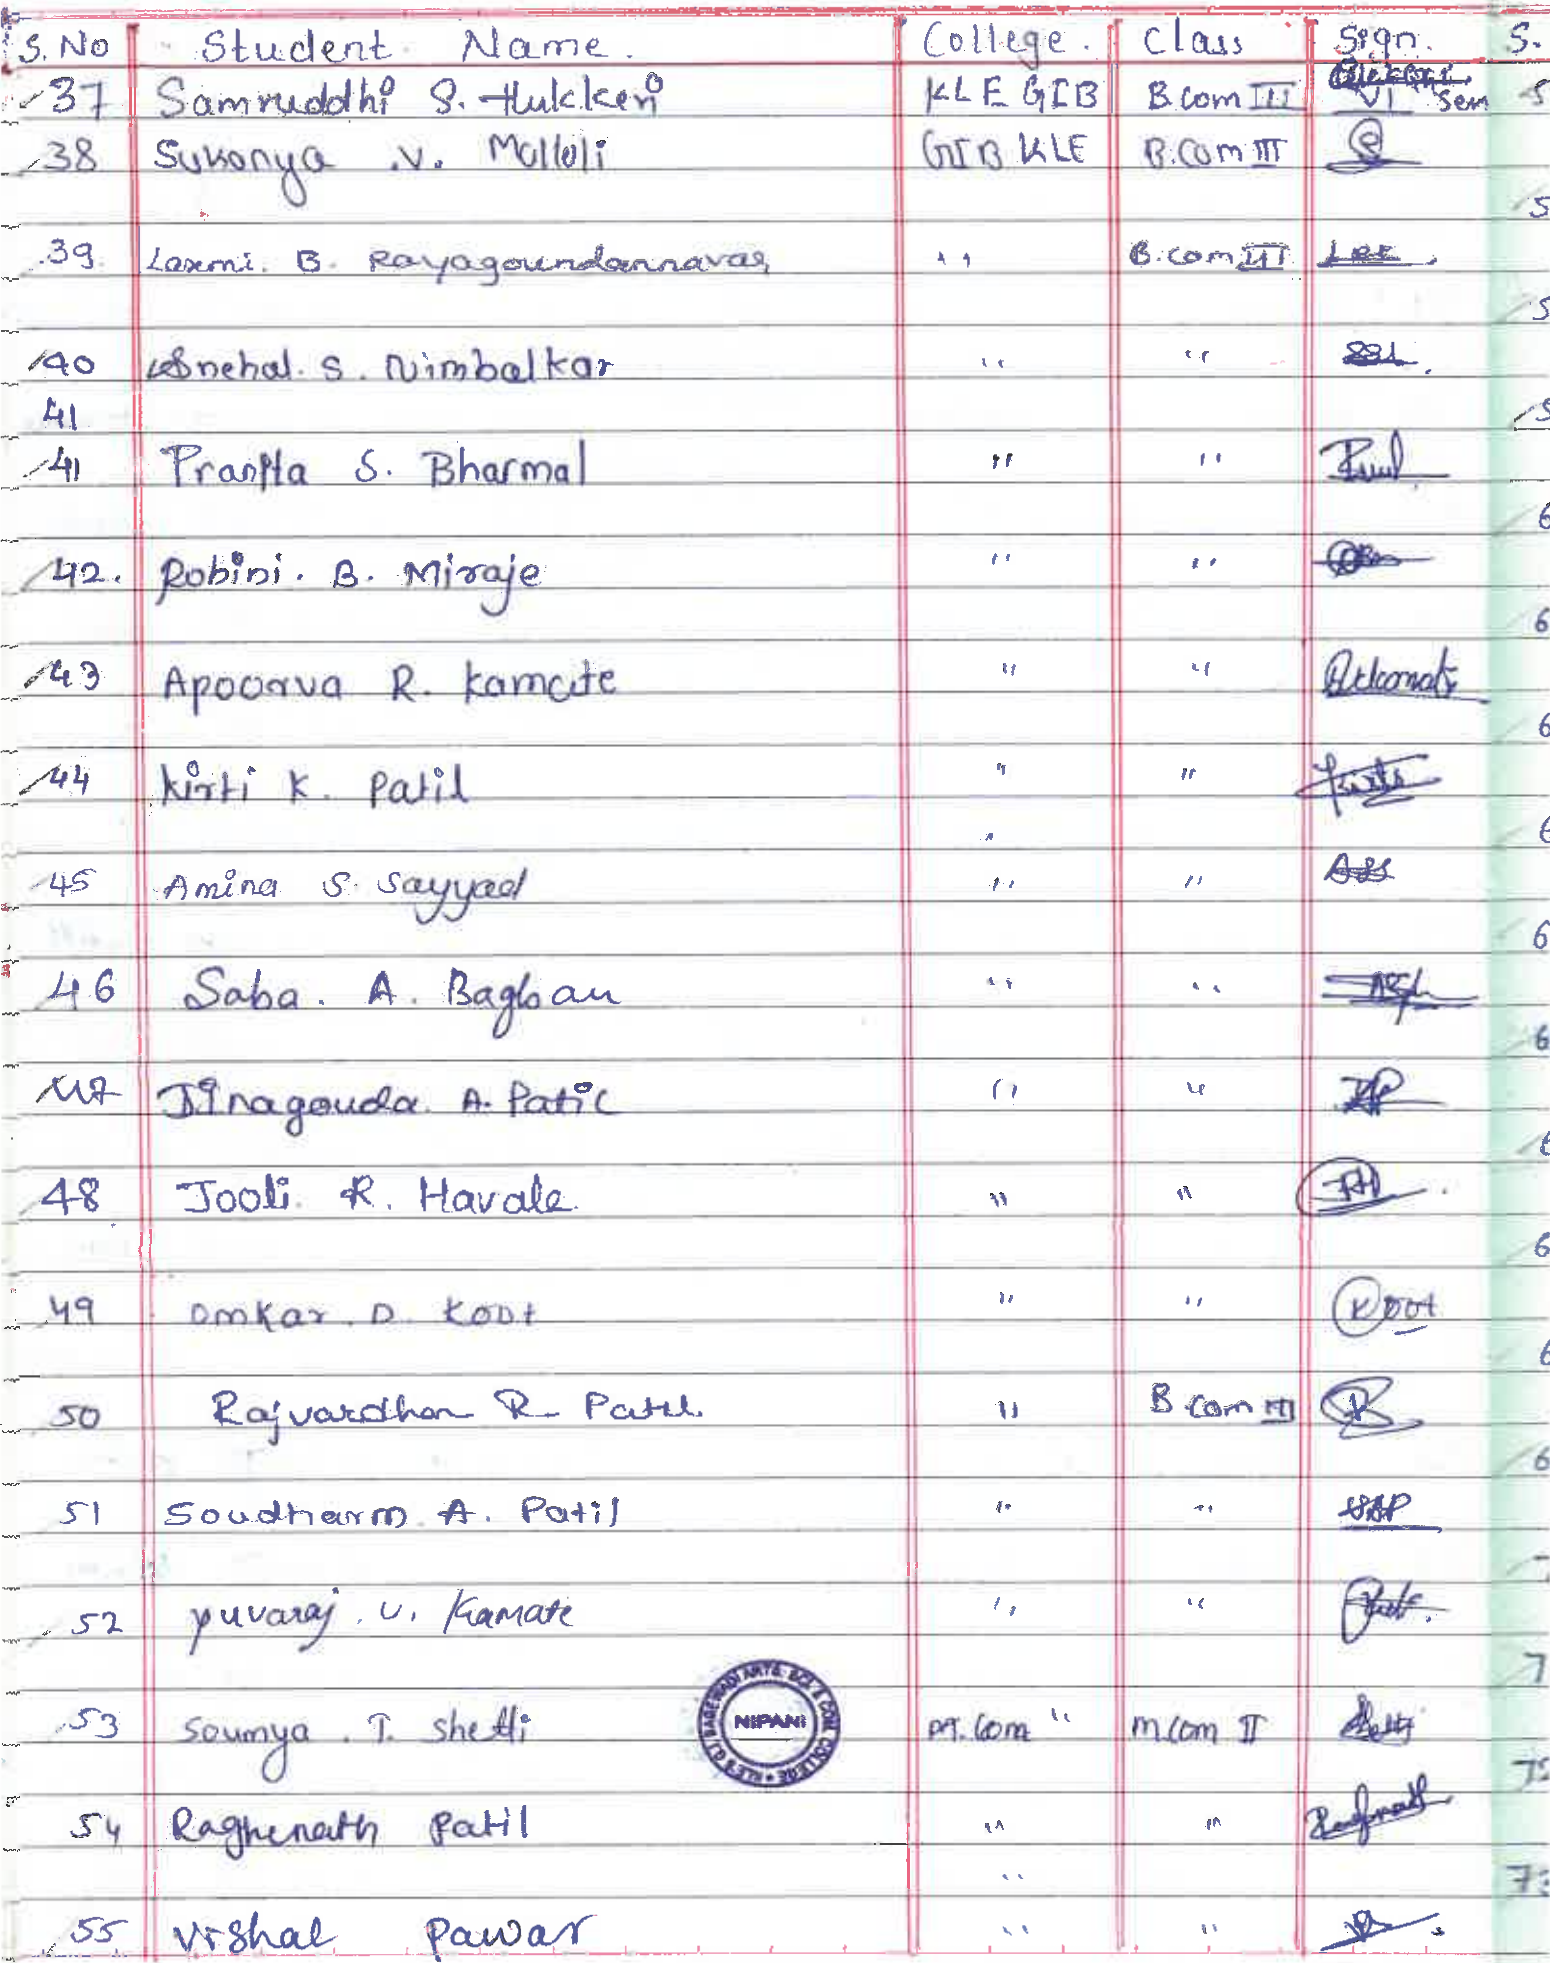 S. No Student Name. College. Class Sign. S.
37 Samruddhi S. Hukkeri KLE GIB B.com III VI Sem
38 Sukanya .V. Malloli GIB KLE B.Com III
39. Laxmi. B. Rayagoundannavar ,, B.com III
40 Snehal. S. Nimbalkar ,, ,,
41
41 Pranita S. Bharmal ,, ,,
42. Rohini. B. Miraje ,, ,,
43 Apoorva R. Kamate ,, ,, 
44 Kirti K. Patil ,, ,, Kirti
45 Amina S. Sayyad ,, ,, ASS
46 Saba. A. Bagban ,, ,,
47 Jinagouda A. Patil ,, ,, JAP
48 Jooli. R. Havale. ,, ,,
49 Omkar. D. Koot ,, ,, Koot
50 Rajvardhan R. Patil. ,, B.com III R
51 Soudharm A. Patil ,, ,, SAP
52 Yuvaraj. V. Kamate ,, ,,
53 Soumya. T. Shetti M.Com ,, M.com II Shetti
NIPANI
54 Raghunath Patil ,, ,, Raghunath
55 Vishal Pawar ,, ,,